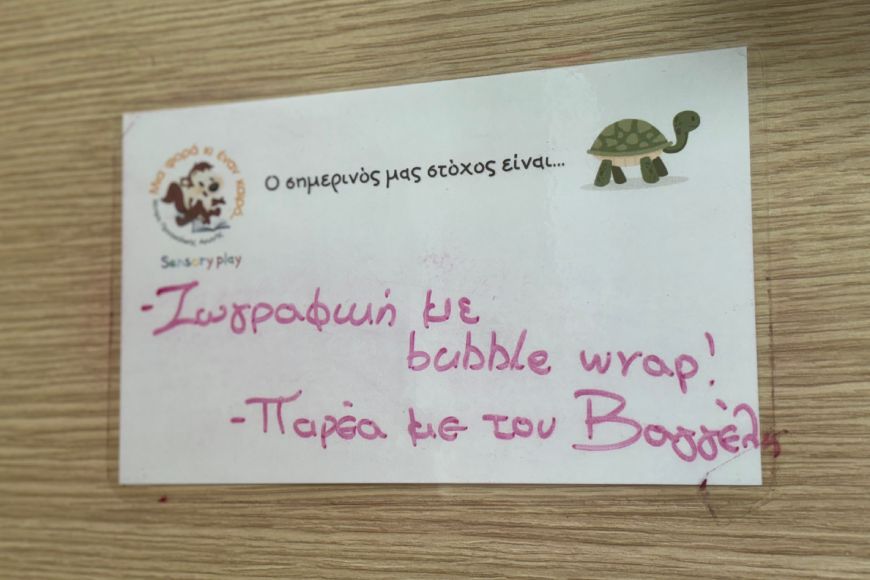 Μια φορά κι έναν καιρό
Sensory play
Ο σημερινός μας στόχος είναι...
-Ζωγραφική με
bubble wrap!
-Παρέα με τον Βαγγέλη